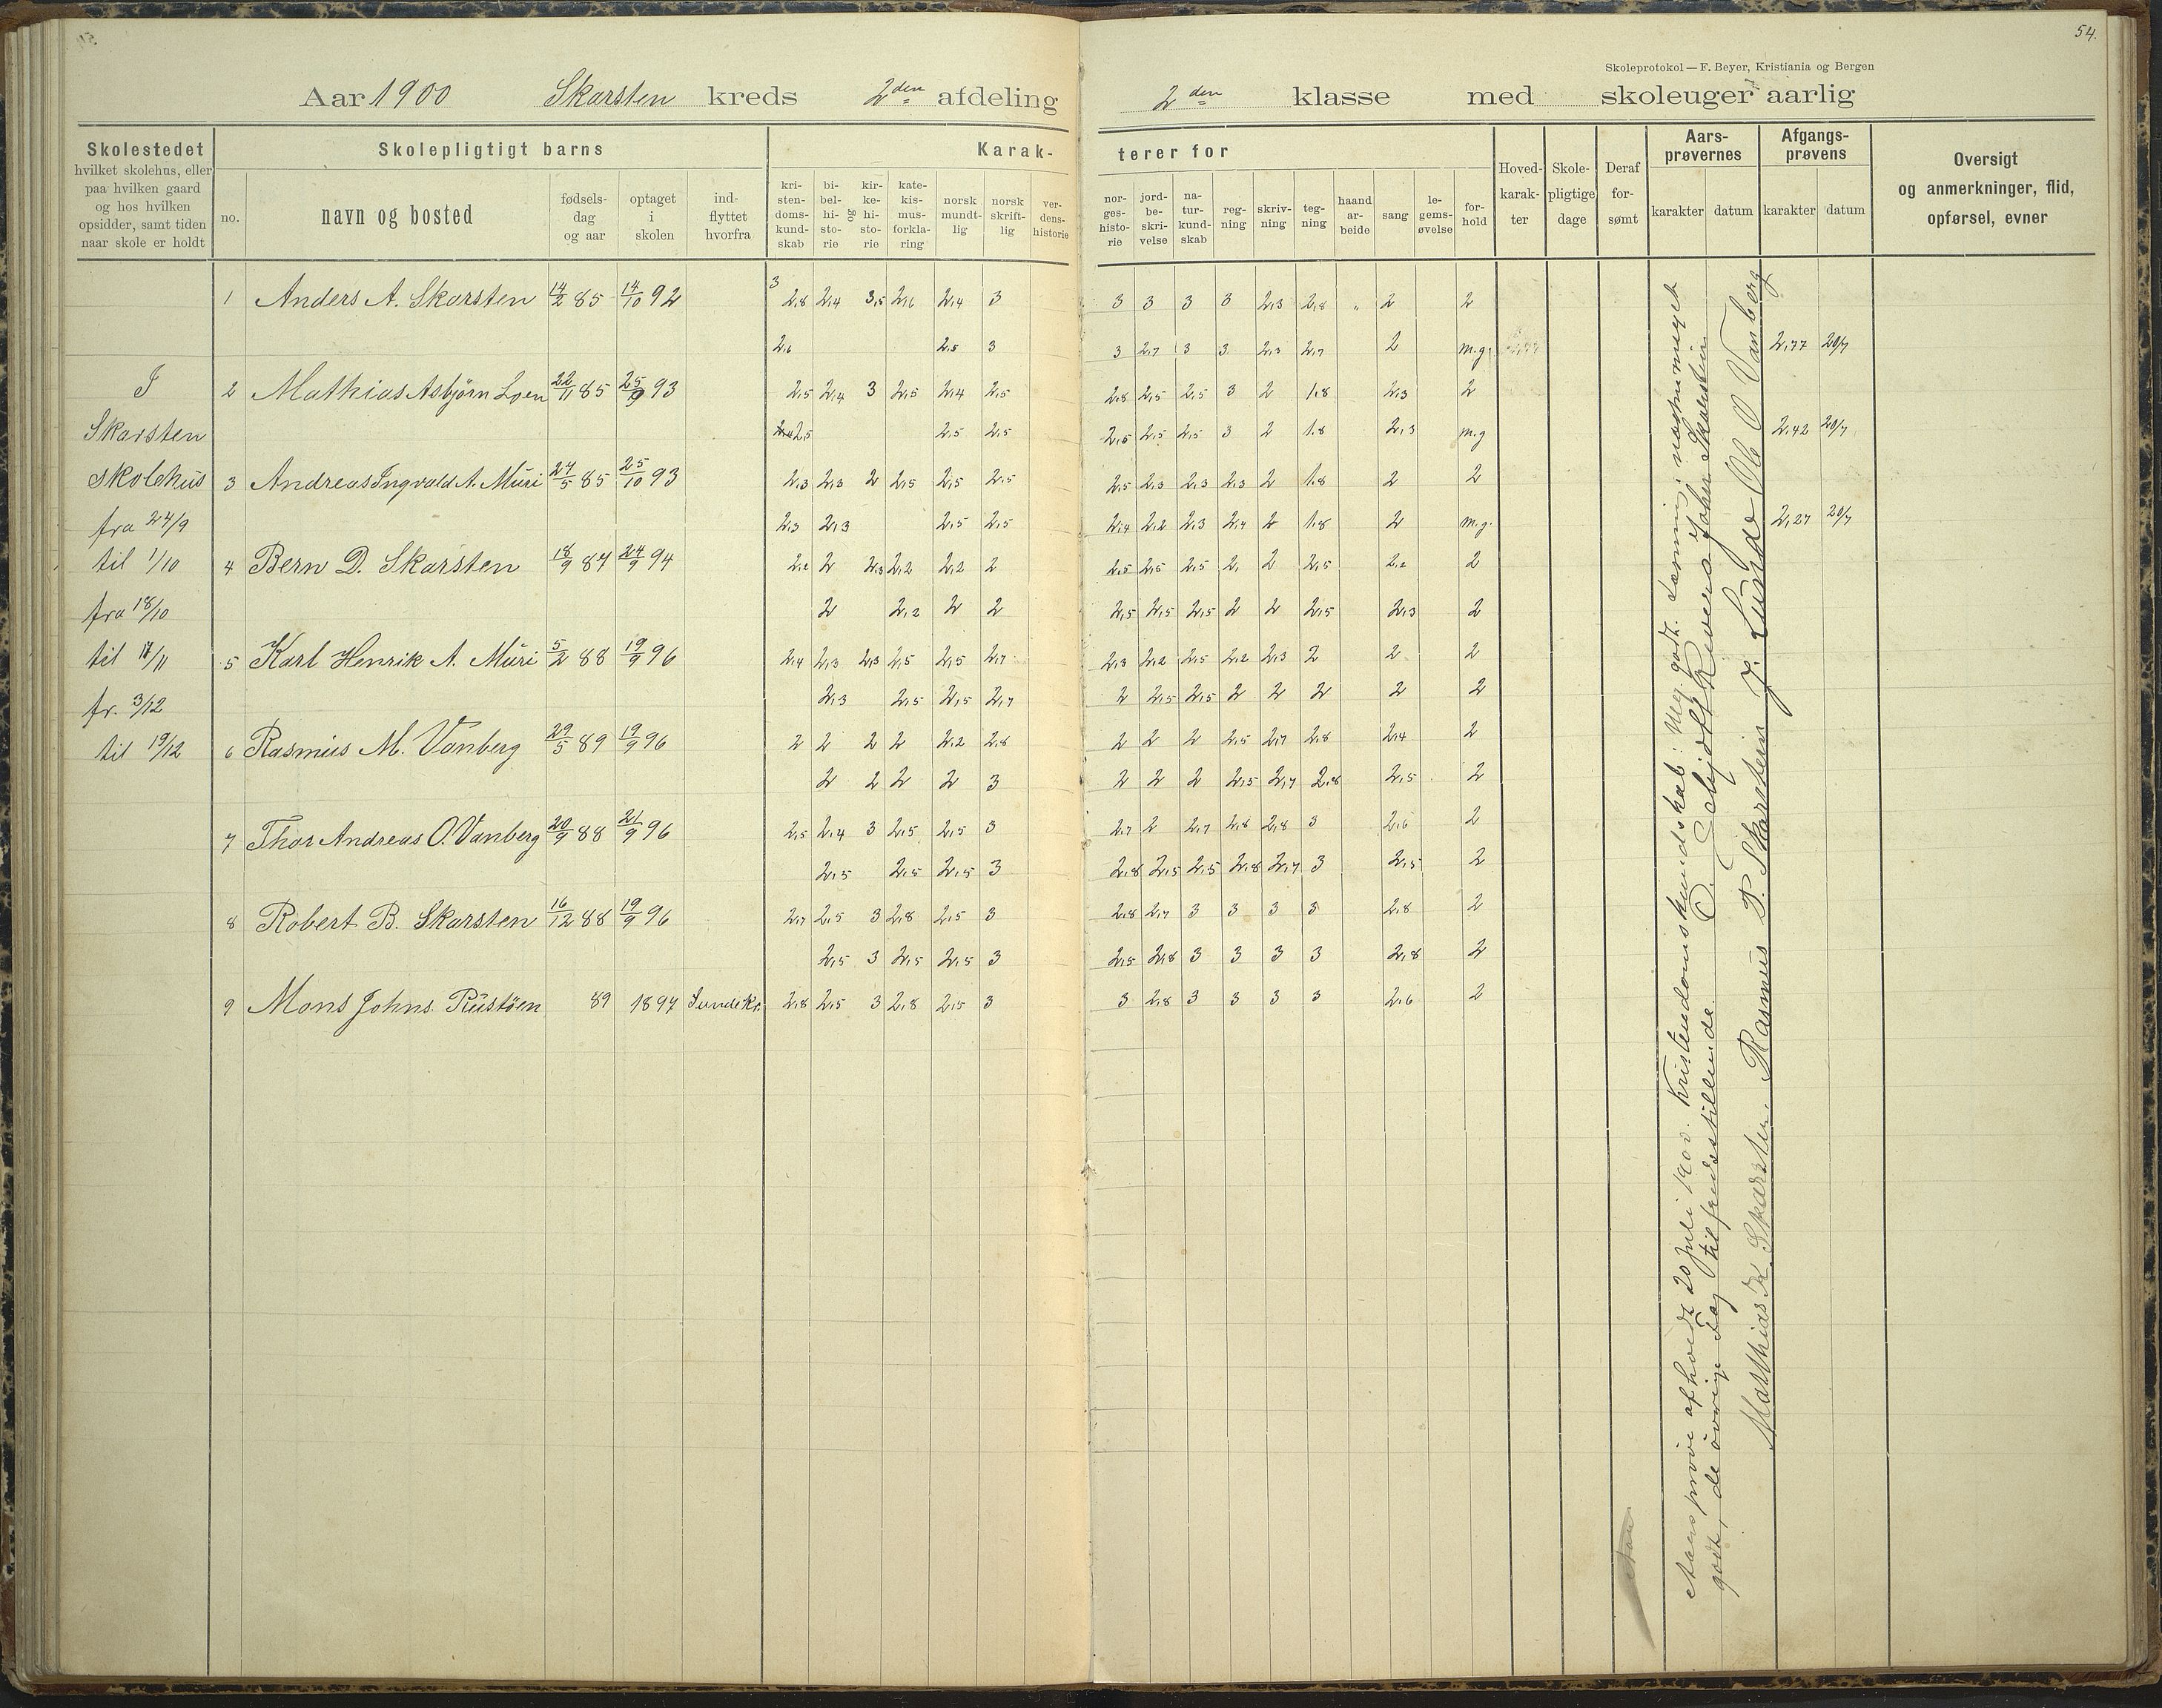 54.
Skoleprotokol — F. Beyer, Kristiania og Bergen
Aar 1900 Skarsten kreds 2den afdeling 2den klasse med skoleuger aarlig
Skolestedet hvilket skolehus, eller paa hvilken gaard og hos hvilken opsidder, samt tiden naar skole er holdt
Skolepligtigt barns
no. navn og bosted fødselsdag og aar optaget i skolen indflyttet hvorfra
Karakterer for
kristendomskundskab bibelhistorie og kirkehistorie katekismusforklaring norsk mundtlig norsk skriftlig verdenshistorie norgeshistorie jordbeskrivelse naturkundskab regning skrivning tegning haandarbeide sang legemsøvelse forhold
Hovedkarakter Skolepligtige dage Deraf forsømt
Aarsprøvernes karakter datum
Afgangsprøvens karakter datum
Oversigt og anmerkninger, flid, opførsel, evner
I
Skarsten
skolehus
fra 24/9
til 1/10
fra 18/10
til 17/11
fr. 3/12
til 19/12
1 Anders A. Skarsten 14/2 85 14/10 92 3 2,8 2,4 3,5 2,6 2,4 3 3 3 3 3 2,3 2,8 " 2 2
2,6 2,5 3 3 2,7 3 3 2,3 2,7 2 m.g. 2,77 20/7
2 Mathias Asbjørn Loen 22/11 85 25/9 93 2,5 2,4 3 2,5 2,4 2,5 2,8 2,5 2,5 3 2 1,8 2,3 2
2,5 2,5 2,5 2,5 2,5 2,5 3 2 1,8 2,3 m.g 2,42 20/7
3 Andreas Ingvald A. Muri 24/5 85 25/10 93 2,3 2,3 2 2,5 2,5 2,5 2,5 2,3 2,3 2,3 2 1,8 2 2
2,3 2,3 2,5 2,5 2,4 2,2 2,3 2,4 2 1,8 2 m.g. 2,27 20/7
4 Bern D. Skarsten 18/9 87 24/9 94 2,2 2 2,3 2,2 2,2 2 2,5 2,5 2,5 2, 2 2,5 2,2 2
2 2,2 2 2 2,5 2,5 2,5 2 2 2,5 2,3 2
5 Karl Henrik A. Muri 5/2 88 19/9 96 2,4 2,3 2,3 2,5 2,5 2,7 2,3 2,2 2,5 2,2 2,3 2 2 2
2,3 2,5 2,5 2,7 2 2,5 2,5 2 2 2 2 2
6 Rasmus M. Vanberg 29/5 89 19/9 96 2 2 2 2 2,2 2,8 2 2 2 2,5 2,7 2,8 2,4 2
2 2 2 2 3 2 2 2 2,5 2,7 2,8 2,5 2
7 Thor Andreas O. Vanberg 20/9 88 21/9 96 2,5 2,4 3 2,5 2,5 3 2,7 2 2,7 2,8 2,8 3 2,6 2
2,5 2,5 2,5 3 2,8 2,5 2,5 2,8 2,7 3 2,5 2
8 Robert B. Skarsten 16/12 88 19/9 96 2,7 2,5 3 2,8 2,5 3 2,8 2,7 3 3 3 3 2,8 2
2,5 3 2,5 2,5 3 2,5 2,8 3 3 3 3 2,8 2
9 Mons Johns. Rustøen 89 1897 Sunde kr. 2,8 2,5 3 2,8 2,5 3 3 2,8 3 3 3 3 2,6 2
Aarsprøve afholdt 20 juli 1900. Kristendomskundskab: Meg. godt. Læsning: nogenmeget
godt, de øvrige Fag tilfredsstillende. Johan Skaarstein
Matthias K. Skarsten. Rasmus P. Skarstein J. Lunde Ole O Vanberg